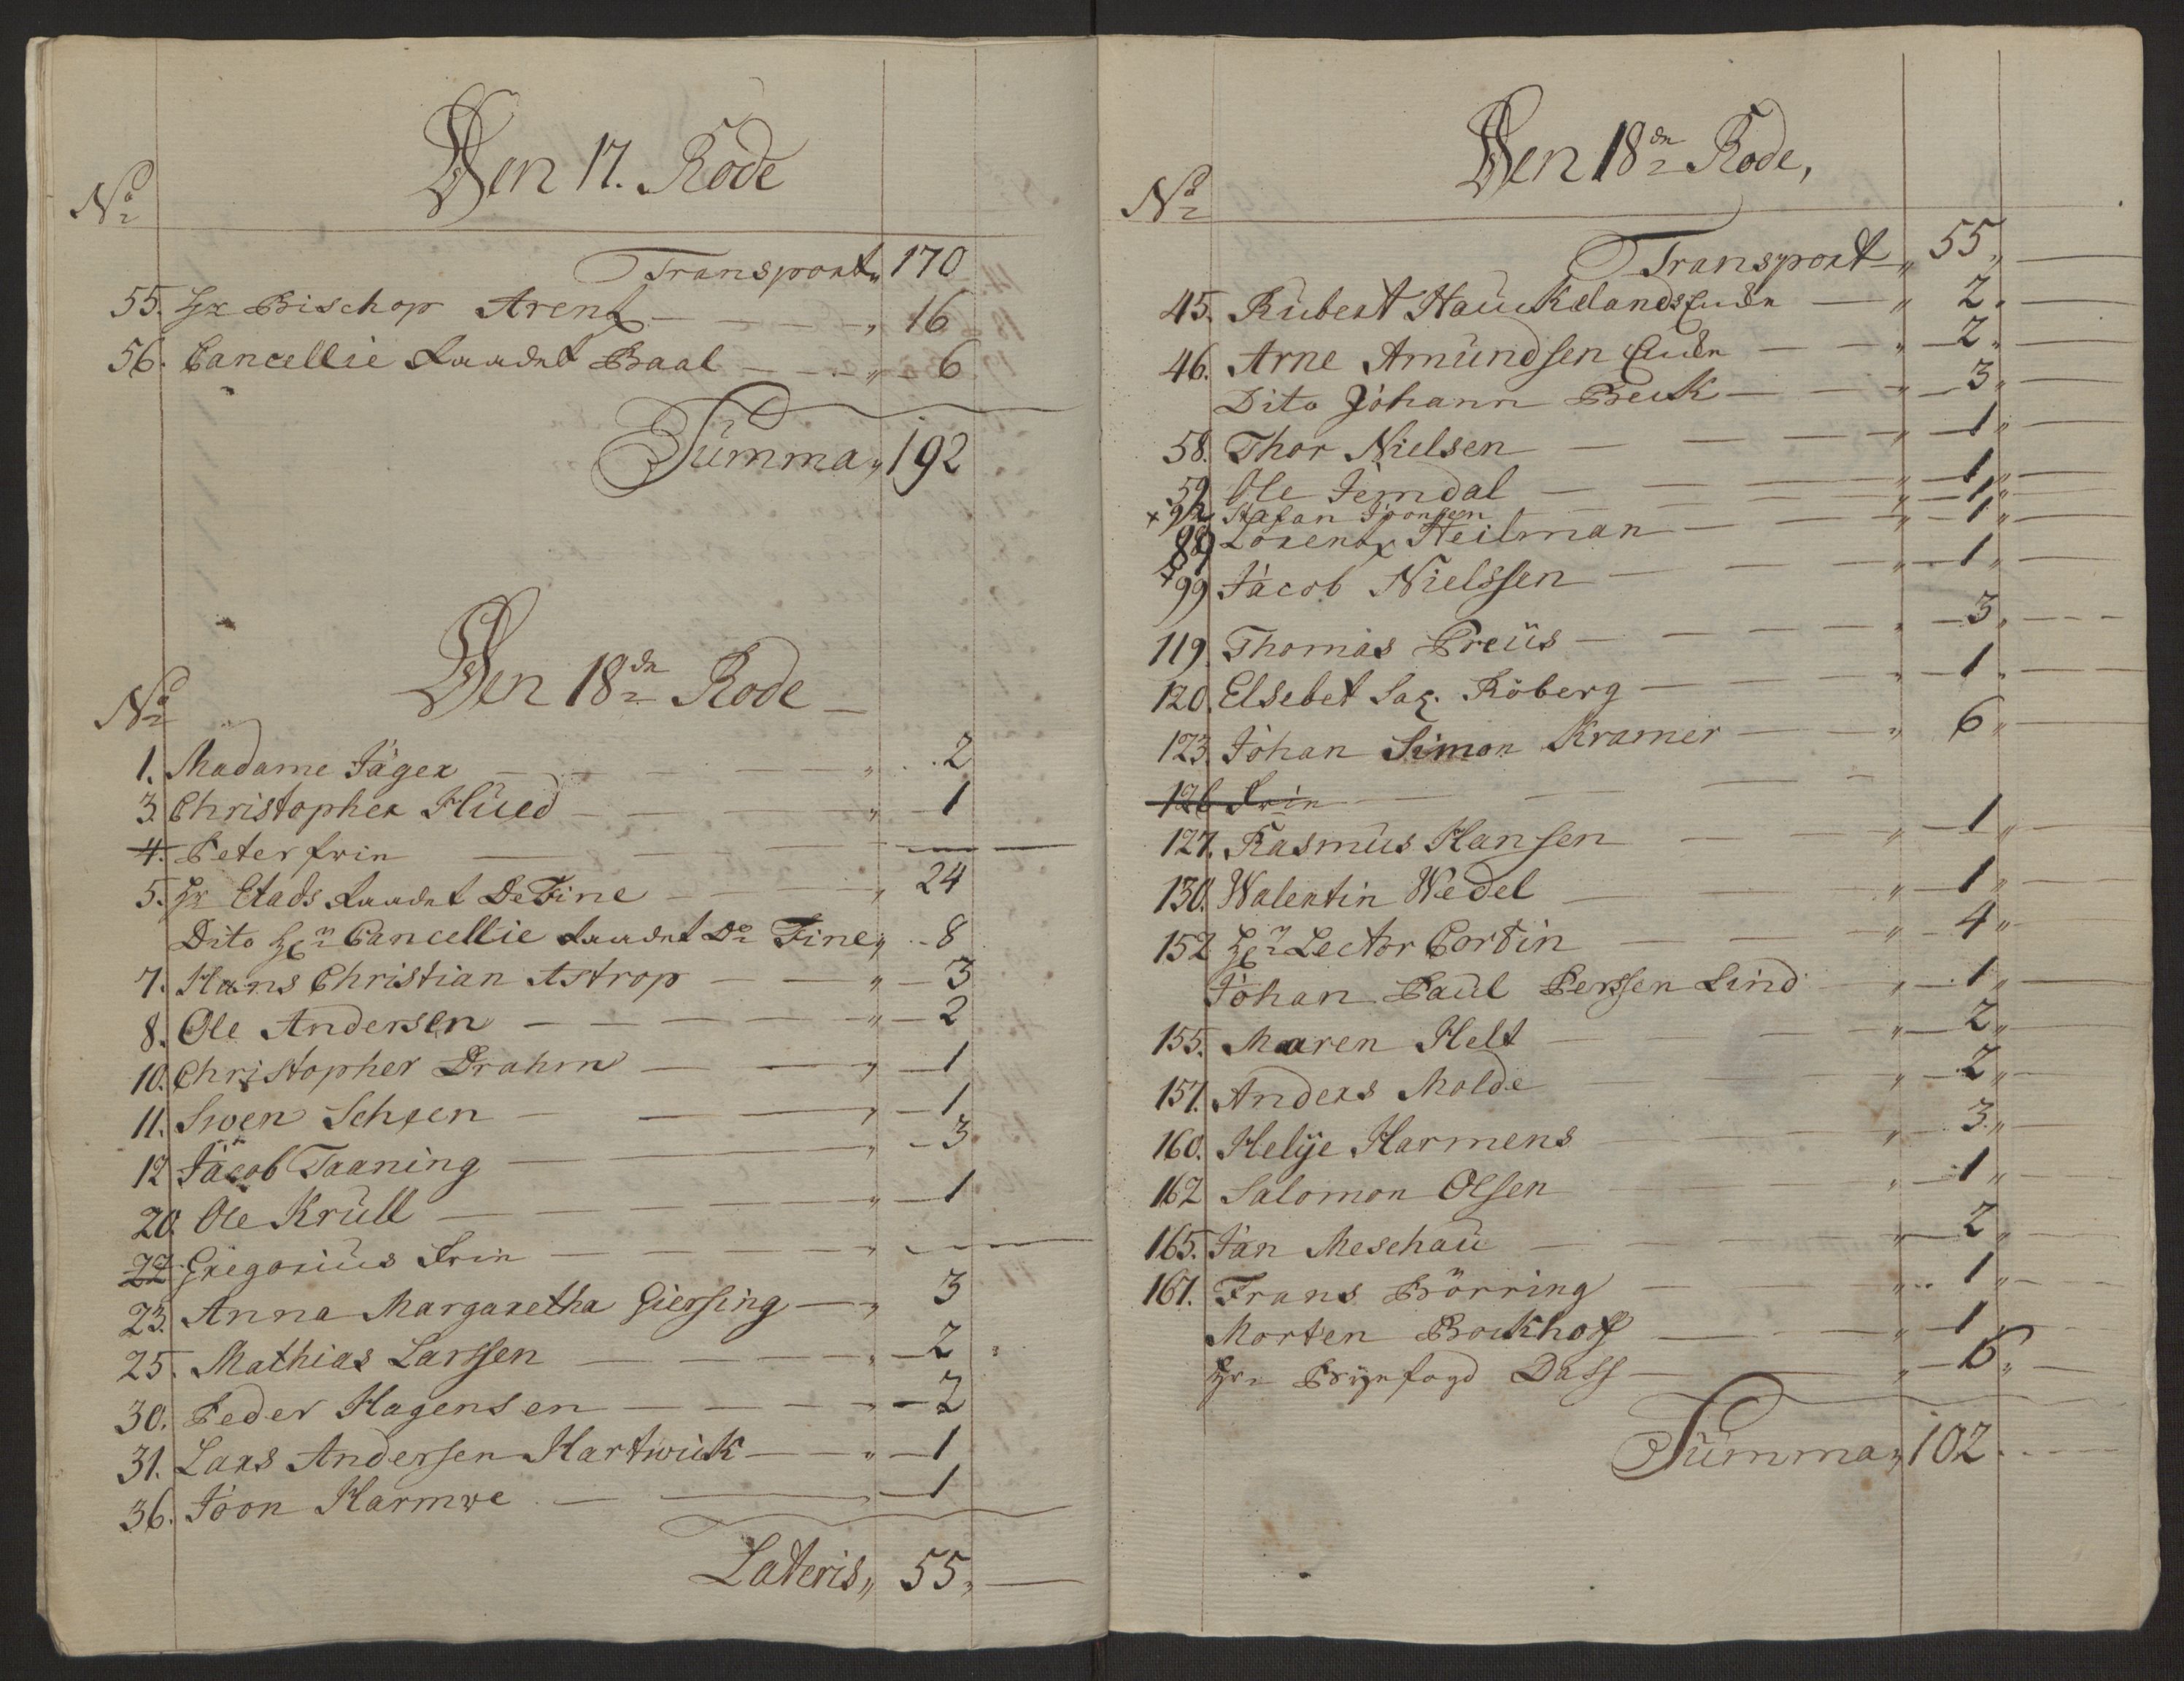 Den 17. Rode
No
Transport „ 170
55. Hr Bischop Arentz „ 16
56. Cancellie Raadet Baal „ 6
Summa „ 192
Den 18de Rode
No
1. Madame Jäger „ 2
3. Christopher Hued „ 1
4. Peter frin
5. Hr Etads Raadet De Fine „ 24
Dito Hrn Cancellie Raadet De Fine „ 8
7. Hans Christian Astrop „ 3
8. Ole Andersen „ 2
10. Christopher Brahm „ 1
11. Swen Scheen „ 1
12 Jacob Taaning „ 3
20. Ole Krüll „ 1
22. Gregorius Frin „
23. Anna Margaretha Giersing „ 3
25. Mathias Larssen „ 2
30. Peder Hagensen „ 2
31. Lars Andersen Hartwick „ 1
36. Joon Harmwe „ 1
Lateris „ 55 „
Den 18de Rode,
No
Transport „ 55 „
45. Rubert Hauckelands Encke „ 2 „
46. Arne Amundsen Encke „ 2 „
Dito Johann Beck „ 3 „
58. Thor Nielsen „ 1 „
59. Ole Jemdal „ 1 „
+ 92 Stafan Joonsen „ 1 „
89 Lorentz Heilman „ 1 „
+ 99 Jacob Nielssen „ 1 „
119. Thomas Preüs „ 3 „
120. Elsebet Sal. Röberg „ 1 „
123. Johan Simon Kramer „ 6 „
126 Frin
127. Rasmus Hansen „ 1 „
130. Walentin Wedel „ 1 „
152 Hrn Lector Cortin „ 4 „
Johan Paul Perssen Lind „ 1 „
155. Maren Helt „ 2 „
157. Anders Molde „ 2 „
160. Helije Harmens „ 3 „
162 Salomon Olsen „ 1 „
165. Jan Meschau „ 2 „
167. Frans Börring „ 1 „
Morten Bockhoff „ 1 „
Hr Byefogd Dass „ 6 „
Summa „ 102